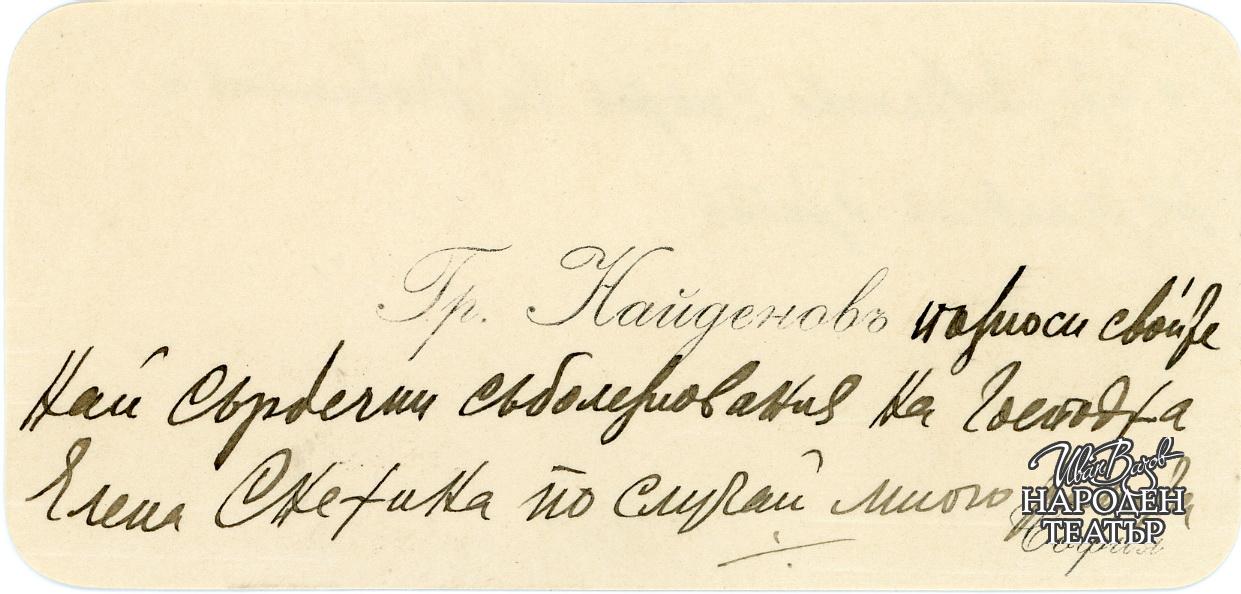 Гр. Найденовъ подноси свойте
Най Сърдечни съболезнования на Госпожа
Елена Снежина по случай много
Иван Вазов
НАРОДЕН
ТЕАТЪР
София